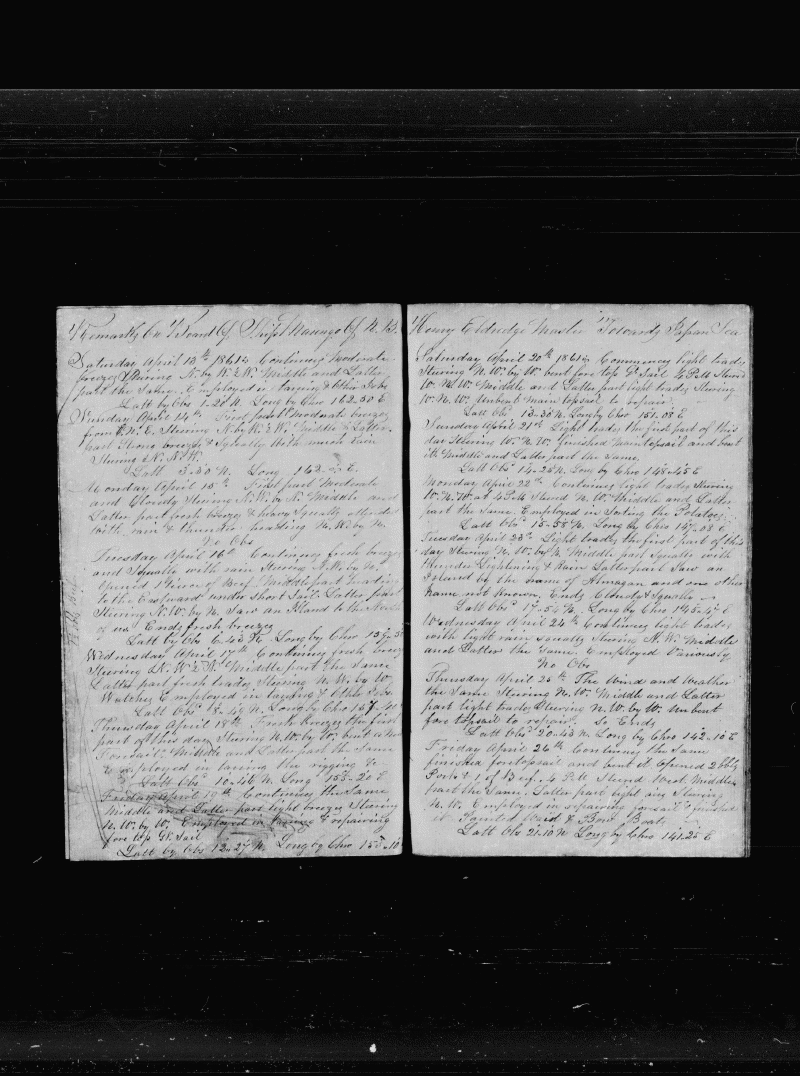 Remarks On Board Of Ship Marengo Of N.B.
Saturday April 13th 1861 Continues Moderate
breezes Steering N. by W. & W. Middle and Latter
part the Same. Employed in Taring & Other Jobs
Latt by Obs 1-20 N. Long by Chro 162-30 E
Sunday April 14th First part Moderate breezes
from E.N.E. Steering N. by W. & W. Middle & Latter
part Strong breezes & Squally With much rain
Steering N. N.W.
Latt 3-30 N. Long 162- E.
Monday April 15th First part Moderate
and Cloudy Steering N.W. by N. Middle and
Latter part fresh breeze & heavy Squalls attended
With rain & thunder heading N. W. by N.
No Obs
Tuesday April 16th Continues fresh breezes
and Squally with rain Steering N.W. by N.
Opened 1 Tierce of Beef. Middle part heading
to the Eastward under Short Sail. Latter part
Steering N.W. by N. Saw an Island to the North
of us Ends fresh breezes
Latt by Obs 6-43 N. Long by Chro 159-
Wednesday April 17th Continues fresh breezes
Steering N.W. & W. Middle part the Same
Latter part fresh trades Steering N. W. by W.
Watches Employed in taring & Other Jobs
Latt Obs 8-49 N. Long by Chro 157-
Thursday April 18th Fresh breezes the first
part of this day Steering N. W. by W. bent a New
Foresail. Middle and Latter part the Same
Employed in taring the rigging &c
Latt Obs 10-46 N. Long 155-20 E
Friday April 19th Continues the Same
Middle and Latter part light breezes Steering
N. W. by W. Employed in & repairing
fore top Gt. Sail
Latt by Obs 12-27 N. Long by Chro 153-10
Henry Eldredge Master Towards Japan Sea
Saturday April 20th 1861 Commences light trades
Steering N. W. by W. bent fore top Gt Sail. 4 P.M. Steered
W. N. W. Middle and Latter part light trades Steering
W. N. W. Unbent Main topsail to repair
Latt Obs 13-38 N. Long by Chro 151-08 E
Sunday April 21st Light trades the first part of this
day Steering W. N. W. finished Main topsail and bent
it Middle and Latter part the Same.
Latt Obs 14-25 N. Long by Chro 148-45 E
Monday April 22nd Continues light trades Steering
W. N. W. at 4 P.M. Steered N. W. Middle and Latter
part the Same. Employed in Sorting the Potatoes
Latt Obs 15-58 N. Long by Chro 147-08 E
Tuesday April 23rd Light trades the first part of this
day Steering N. W. by N. Middle part Squally with
thunder Lightening & Rain Latter part Saw an
Island by the name of Almagan and one other
name not known. Ends Cloudy & Squally
Latt Obs 17-54 N. Long by Chro 145-47 E
Wednesday April 24th Continues light trades
with light rain squalls Steering N. W. Middle
and Latter the Same. Employed Variously
No Obs
Thursday April 25th The Wind and Weather
the Same Steering N. W. Middle and Latter
part light trades Steering N. W. by W. Unbent
fore topsail to repair. So Ends
Latt Obs 20-43 N. Long by Chro 142-10 E
Friday April 26th Continues the Same
finished foretopsail and bent it Opened 2 bbls
Pork & 1 of Beef. 4 P.M Steered West. Middle
part the Same. Latter part light airs Steering
N. W. Employed in repairing foresail & finished
it Painted & Bow Boats
Latt Obs 21-10 N Long by Chro 141-25 E